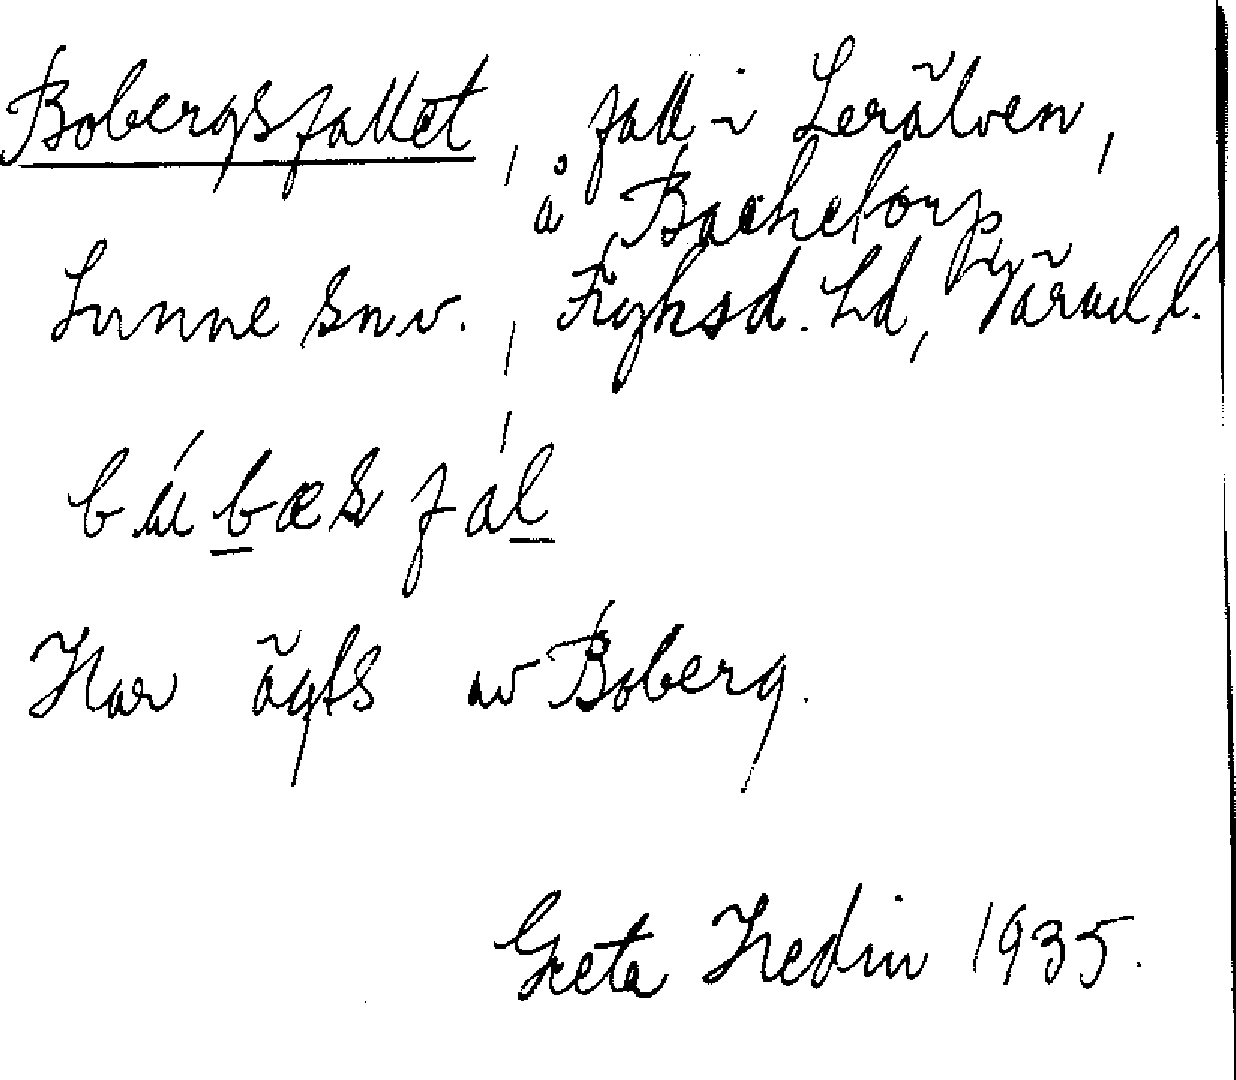 Bobergsfallet, fall i Lerälven,
å Backetorp
Sunne snv., Fryksd. hd, Värml l.
búbæs fál
Har ägts av Boberg.
Greta Hedin 1935.